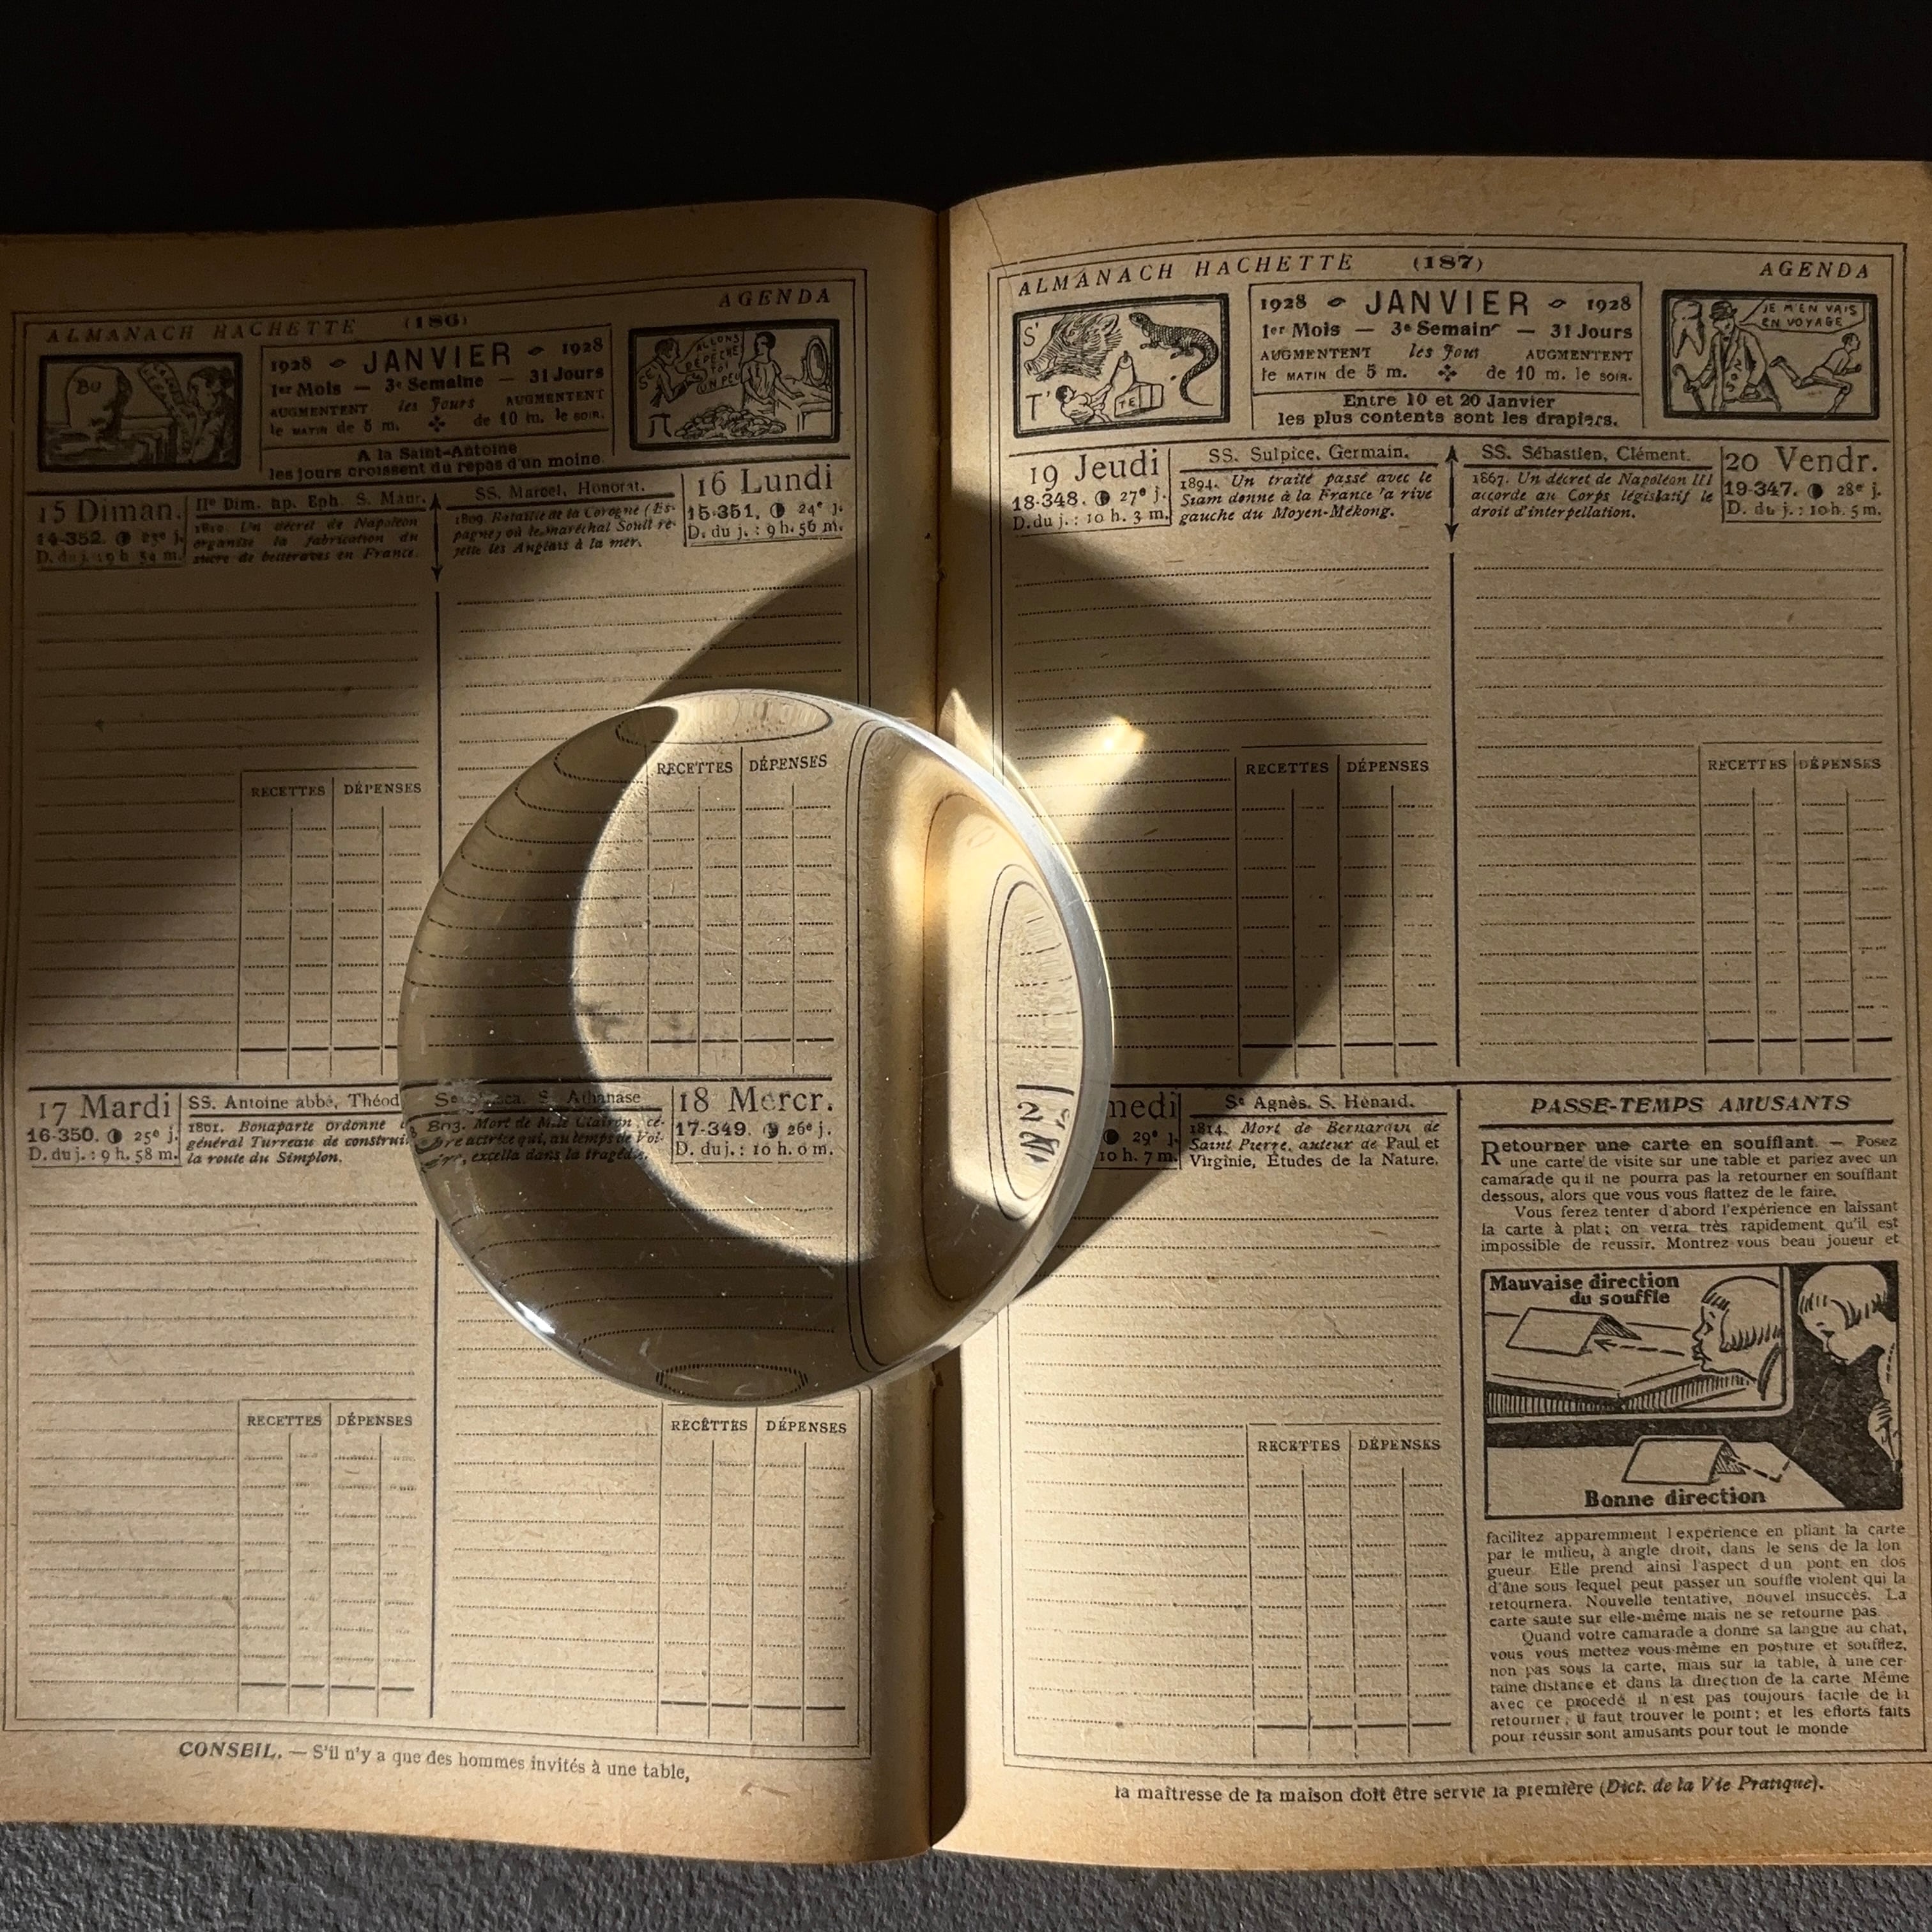 ALMANACH HACHETTE (186) AGENDA
BU
ALLONS
DÉPÊCHE
TOI
UN PEU
π
1928 JANVIER 1928
1er Mois — 3e Semaine — 31 Jours
AUGMENTENT les Jours AUGMENTENT
le MATIN de 5 m. de 10 m. le SOIR.
A la Saint-Antoine
les jours croissent du repas d'un moine.
15 Diman.
14-352. 23e j.
D. du j. : 9 h. 54 m.
IIe Dim. ap. Eph. S. Maur.
1810. Un décret de Napoléon
organise la fabrication du
sucre de betteraves en France.
SS. Marcel, Honorat.
1809. Bataille de la Corogne (Es-
pagne) où le maréchal Soult re-
jette les Anglais à la mer.
16 Lundi
15-351. 24e j.
D. du j. : 9 h. 56 m.
RECETTES DÉPENSES
RECETTES DÉPENSES
17 Mardi
16-350. 25e j.
D. du j. : 9 h. 58 m.
SS. Antoine abbé, Théod
1801. Bonaparte ordonne
général Turreau de construi
la route du Simplon.
S. Athanase
Mort de Mlle Clairon, cé-
bre actrice qui, au temps de Vol-
excella dans la tragédie.
18 Mercr.
17-349. 26e j.
D. du j. : 10 h. 0 m.
RECETTES DÉPENSES
RECETTES DÉPENSES
CONSEIL. — S'il n'y a que des hommes invités à une table,
ALMANACH HACHETTE (187) AGENDA
S'
T'
TE
JE M'EN VAIS
EN VOYAGE
1928 JANVIER 1928
1er Mois — 3e Semaine — 31 Jours
AUGMENTENT les Jours AUGMENTENT
le MATIN de 5 m. de 10 m. le SOIR.
Entre 10 et 20 Janvier
les plus contents sont les drapiers.
19 Jeudi
18-348. 27e j.
D. du j. : 10 h. 3 m.
SS. Sulpice, Germain.
1894. Un traité passé avec le
Siam donne à la France la rive
gauche du Moyen-Mékong.
SS. Sébastien, Clément.
1867. Un décret de Napoléon III
accorde au Corps législatif le
droit d'interpellation.
20 Vendr.
19-347. 28e j.
D. du j. : 10 h. 5 m.
RECETTES DÉPENSES
RECETTES DÉPENSES
medi
29e j.
10 h. 7 m.
Se Agnès. S. Hénard.
1814. Mort de Bernardin de
Saint Pierre, auteur de Paul et
Virginie, Études de la Nature.
RECETTES DÉPENSES
PASSE-TEMPS AMUSANTS
Retourner une carte en soufflant. — Posez
une carte de visite sur une table et pariez avec un
camarade qu'il ne pourra pas la retourner en soufflant
dessous, alors que vous vous flattez de le faire.
Vous ferez tenter d'abord l'expérience en laissant
la carte à plat ; on verra très rapidement qu'il est
impossible de réussir. Montrez-vous beau joueur et
Mauvaise direction
du souffle
Bonne direction
facilitez apparemment l'expérience en pliant la carte
par le milieu, à angle droit, dans le sens de la lon
gueur. Elle prend ainsi l'aspect d'un pont en dos
d'âne sous lequel peut passer un souffle violent qui la
retournera. Nouvelle tentative, nouvel insuccès. La
carte saute sur elle-même mais ne se retourne pas.
Quand votre camarade a donné sa langue au chat,
vous vous mettez vous-même en posture et soufflez,
non pas sous la carte, mais sur la table, à une cer-
taine distance et dans la direction de la carte. Même
avec ce procédé il n'est pas toujours facile de la
retourner ; il faut trouver le point ; et les efforts faits
pour réussir sont amusants pour tout le monde
la maîtresse de la maison doit être servie la première (Dict. de la Vie Pratique).